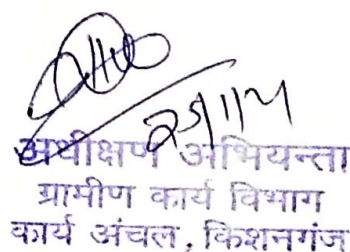 अधीक्षण अभियन्ता
ग्रामीण कार्य विभाग
कार्य अंचल, किशनगंज